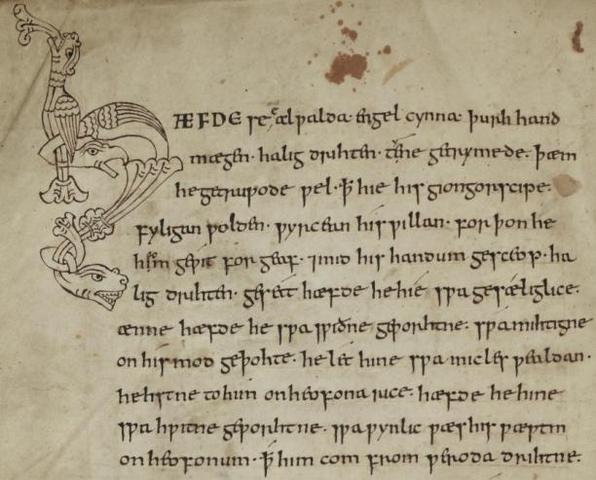 HÆFDE se ealƿalda· engel cynna· þurh hand
mægen· halig drihten· téne getrymede· þæm
he getruƿode ƿel· ꝥ hie his giongorscipe·
fyligan ƿolden· ƿyrcean his ƿillan· for þon he
him geƿit for geaf· ⁊mid his handum gesceop· ha
lig drihten· gesét hæfde he hie sƿa gesæliglice·
ænne hæfde he sƿa sƿiðne geƿorhtne· sƿa mihtigne
on his mod geþohte· he let hine sƿa micles ƿealdan·
hehstne to him on heofona rice· hæfde he hine
sƿa hƿitne geƿorhtne· sƿa ƿynlic ƿæs his ƿæstm
on heofonum· ꝥ him com from ƿeroda drihtne·